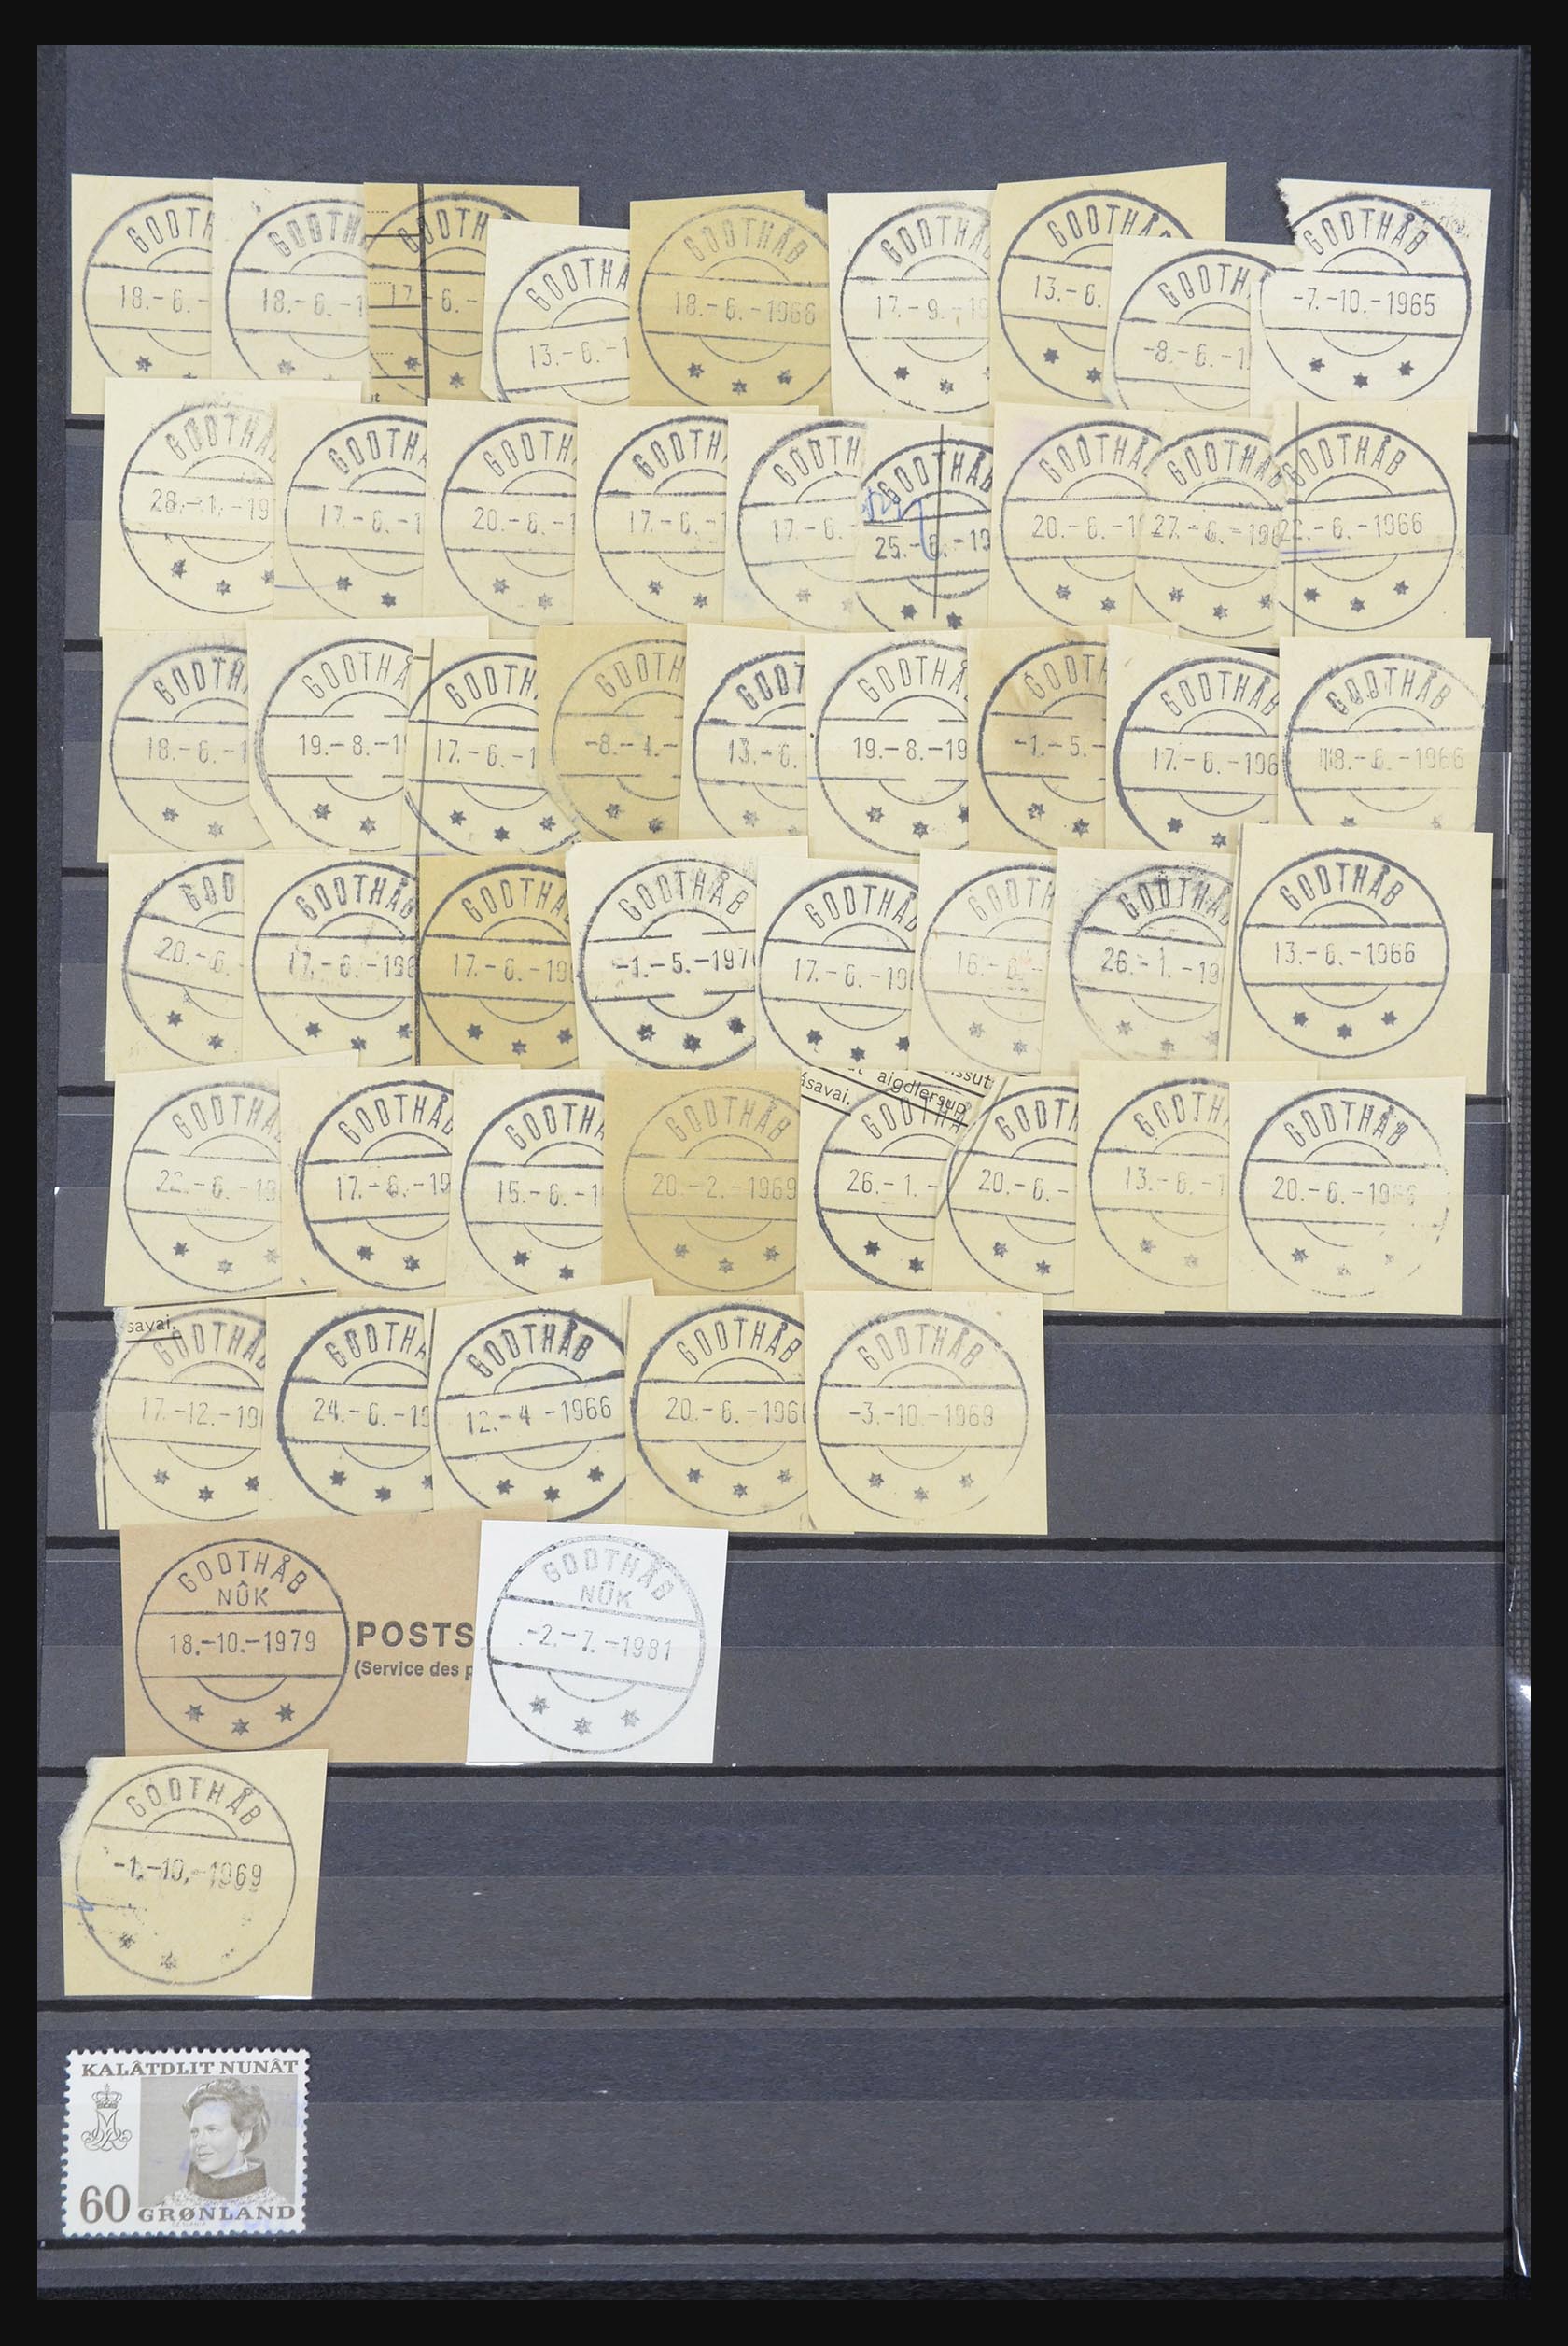 GODTH
18.-6.-
GODTH
18.-6.-1
GODTH
17 -6.-
GODTHÅ
13.-6.-1
GODTHÅB
18.-6.-1966
GODTHÅ
17.-9.-19
GODTHÅ
13.-6.
GODTH
-8.-6.-1
GODTHÅB
-7.-10.-1965
GODTHÅ
28.-1.-19
GODTH
17.-6.-1
GODTH
20.-6.-1
GODTH
17.-6.-1
GODTH
17.-6.
GODTHÅB
25.-6.-19
GODTHÅ
20.-6.-1
GODTHÅB
27.-6.-196
GODTHÅB
22.-6.-1966
GODTH
18.-6.-1
GODTHÅ
19.-8.-1
GODTH
17.-6.-1
GODTH
-8.-4.-
GODT
13.-6.
GODTHÅ
19.-8.-19
GODTH
-1.-5.-
GODTHÅB
17.-6.-196
GODTHÅB
18.-6.-1966
GOD
20.-6.
GODTHÅB
17.-6.-196
GODTHÅ
17.-6.-19
GODTHÅB
-1.-5.-197
GODTHÅB
17.-6.-19
GODTH
16.-6.-
GODTHÅB
26.-1.-19
GODTHÅB
13.-6.-1966
GODTHÅ
22.-6.-19
GODTHÅB
17.-6.-19
GODTHÅ
15.-6.-1
GODTHÅB
20.-2.-1969
ásavai.
aigdlersup
issut
GODTHÅ
26.-1.-
GODTH
20.-6.-
GODTH
13.-6.-1
GODTHÅB
20.-6.-19
savai.
GODTHÅB
17.-12.-19
GODTHÅ
24.-6.-19
GODTHÅB
12.-4-1966
GODTHÅB
20.-6.-196
GODTHÅB
-3.-10.-1969
GODTHÅB
NÛK
18.-10.-1979
POSTS
(Service des p
GODTHÅB
NÛK
-2.-7.-1981
GODTHÅB
-1.-10.-1969
KALÂTDLIT NUNÂT
60 GRØNLAND